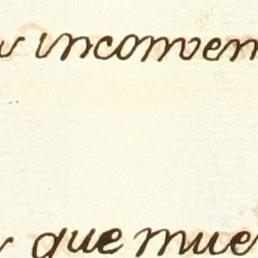 inconven
que mue